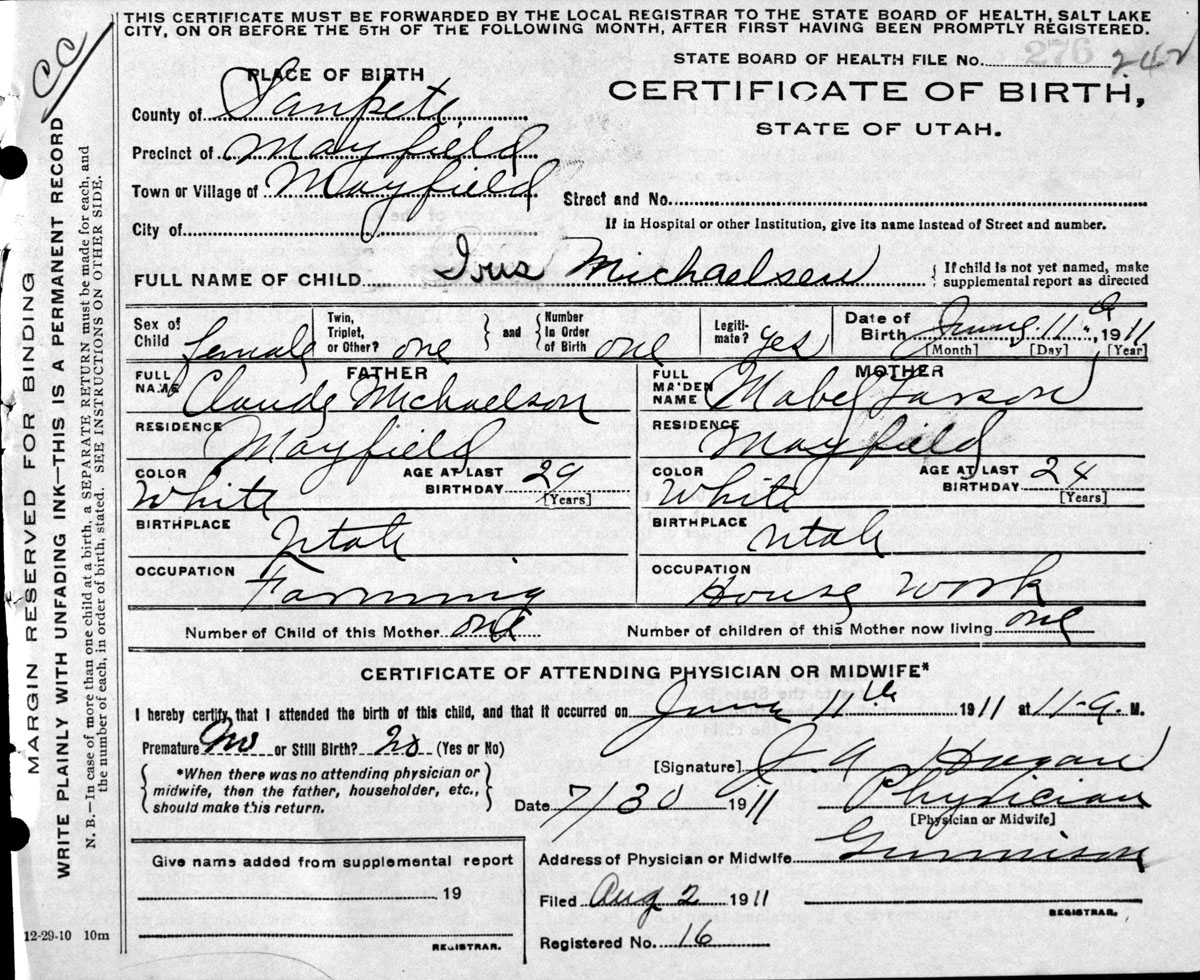 THIS CERTIFICATE MUST BE FORWARDED BY THE LOCAL REGISTRAR TO THE STATE BOARD OF HEALTH, SALT LAKE
CITY, ON OR BEFORE THE 5TH OF THE FOLLOWING MONTH, AFTER FIRST HAVING BEEN PROMPTLY REGISTERED.
CC
276
STATE BOARD OF HEALTH FILE No. 242
PLACE OF BIRTH
CERTIFICATE OF BIRTH,
STATE OF UTAH.
County of Sanpete
Precinct of Mayfield
Town or Village of Mayfield
Street and No.
City of
If in Hospital or other Institution, give its name instead of Street and number.
FULL NAME OF CHILD Iris Michaelsen
If child is not yet named, make
supplemental report as directed
Sex of Child Female
Twin, Triplet, or Other? one
and Number in Order of Birth one
Legitimate? yes
Date of Birth June 11, 1911
[Month] [Day] [Year]
FATHER
FULL NAME Claude Michaelson
RESIDENCE Mayfield
COLOR White AGE AT LAST BIRTHDAY 29 [Years]
BIRTHPLACE Utah
OCCUPATION Farming
MOTHER
FULL MAIDEN NAME Mabel Larson
RESIDENCE Mayfield
COLOR White AGE AT LAST BIRTHDAY 24 [Years]
BIRTHPLACE Utah
OCCUPATION House Work
Number of Child of this Mother one Number of children of this Mother now living one
CERTIFICATE OF ATTENDING PHYSICIAN OR MIDWIFE*
I hereby certify that I attended the birth of this child, and that it occurred on June 11th 1911 at 11-a. M.
Premature No or Still Birth? No (Yes or No)
*When there was no attending physician or
midwife, then the father, householder, etc.,
should make this return.
[Signature] J. A. Hagan
Date 7/30 1911 Physician
[Physician or Midwife]
Give name added from supplemental report
19
REGISTRAR.
Address of Physician or Midwife Gunnison
Filed Aug 2 1911
REGISTRAR.
Registered No. 16
12-29-10 10m
MARGIN RESERVED FOR BINDING
WRITE PLAINLY WITH UNFADING INK—THIS IS A PERMANENT RECORD
N. B.—In case of more than one child at a birth, a SEPARATE RETURN must be made for each, and
the number of each, in order of birth, stated. SEE INSTRUCTIONS ON OTHER SIDE.